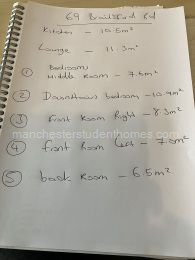 69 Brailsford Rd
Kitchen - 10.5m²
Lounge - 11.3m²
Bedrooms
① Middle Room - 7.6m²
② Downstairs bedroom - 10.9m²
③ Front Room Right - 8.3m²
manchesterstudenthomes.com
④ front Room Left - 7.0m²
⑤ back Room - 6.5m²